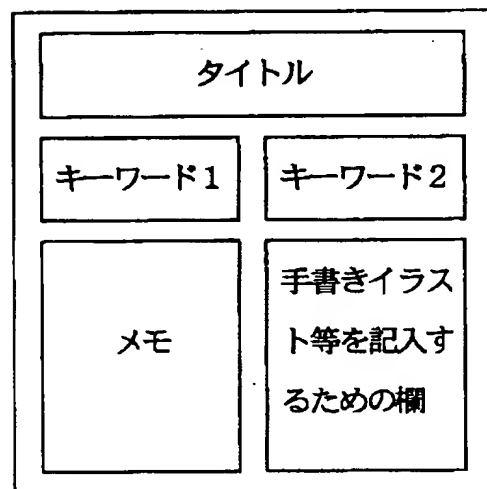 タイトル
キーワード1
キーワード2
メモ
手書きイラス
ト等を記入す
るための欄